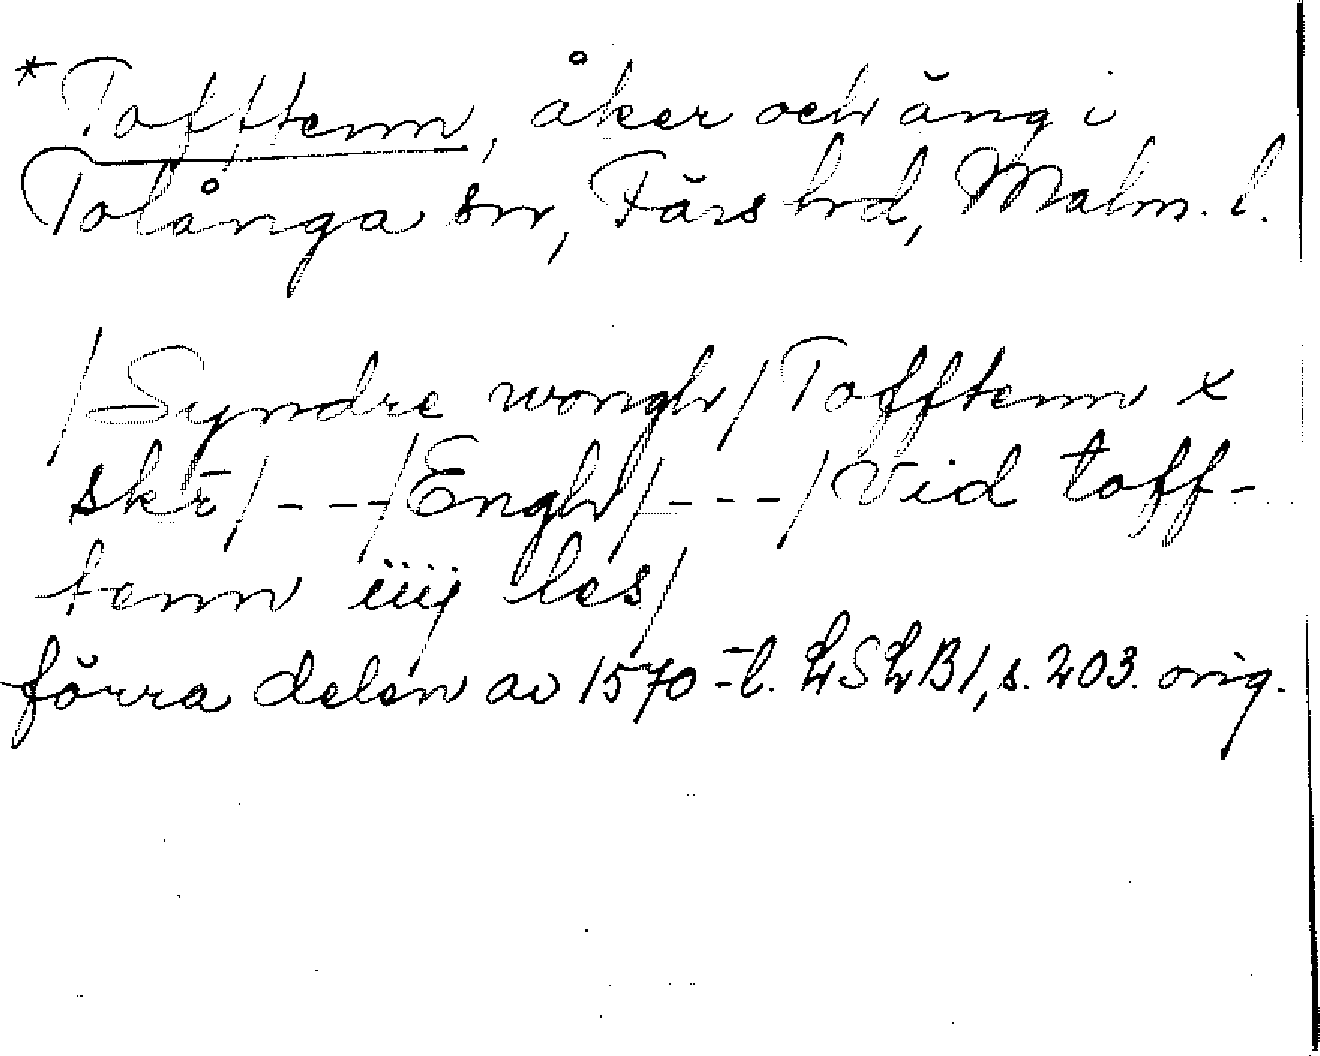 *Tofftenn, åker och äng i
Tolånga sn, Färs hrd, Malm. l.
/Syndre wongh/Tofftenn x
skr̄/---/Engh/---/Vid toff-
tenn iiij les/
förra delen av 1570-t. LSLB1, s. 203. orig.